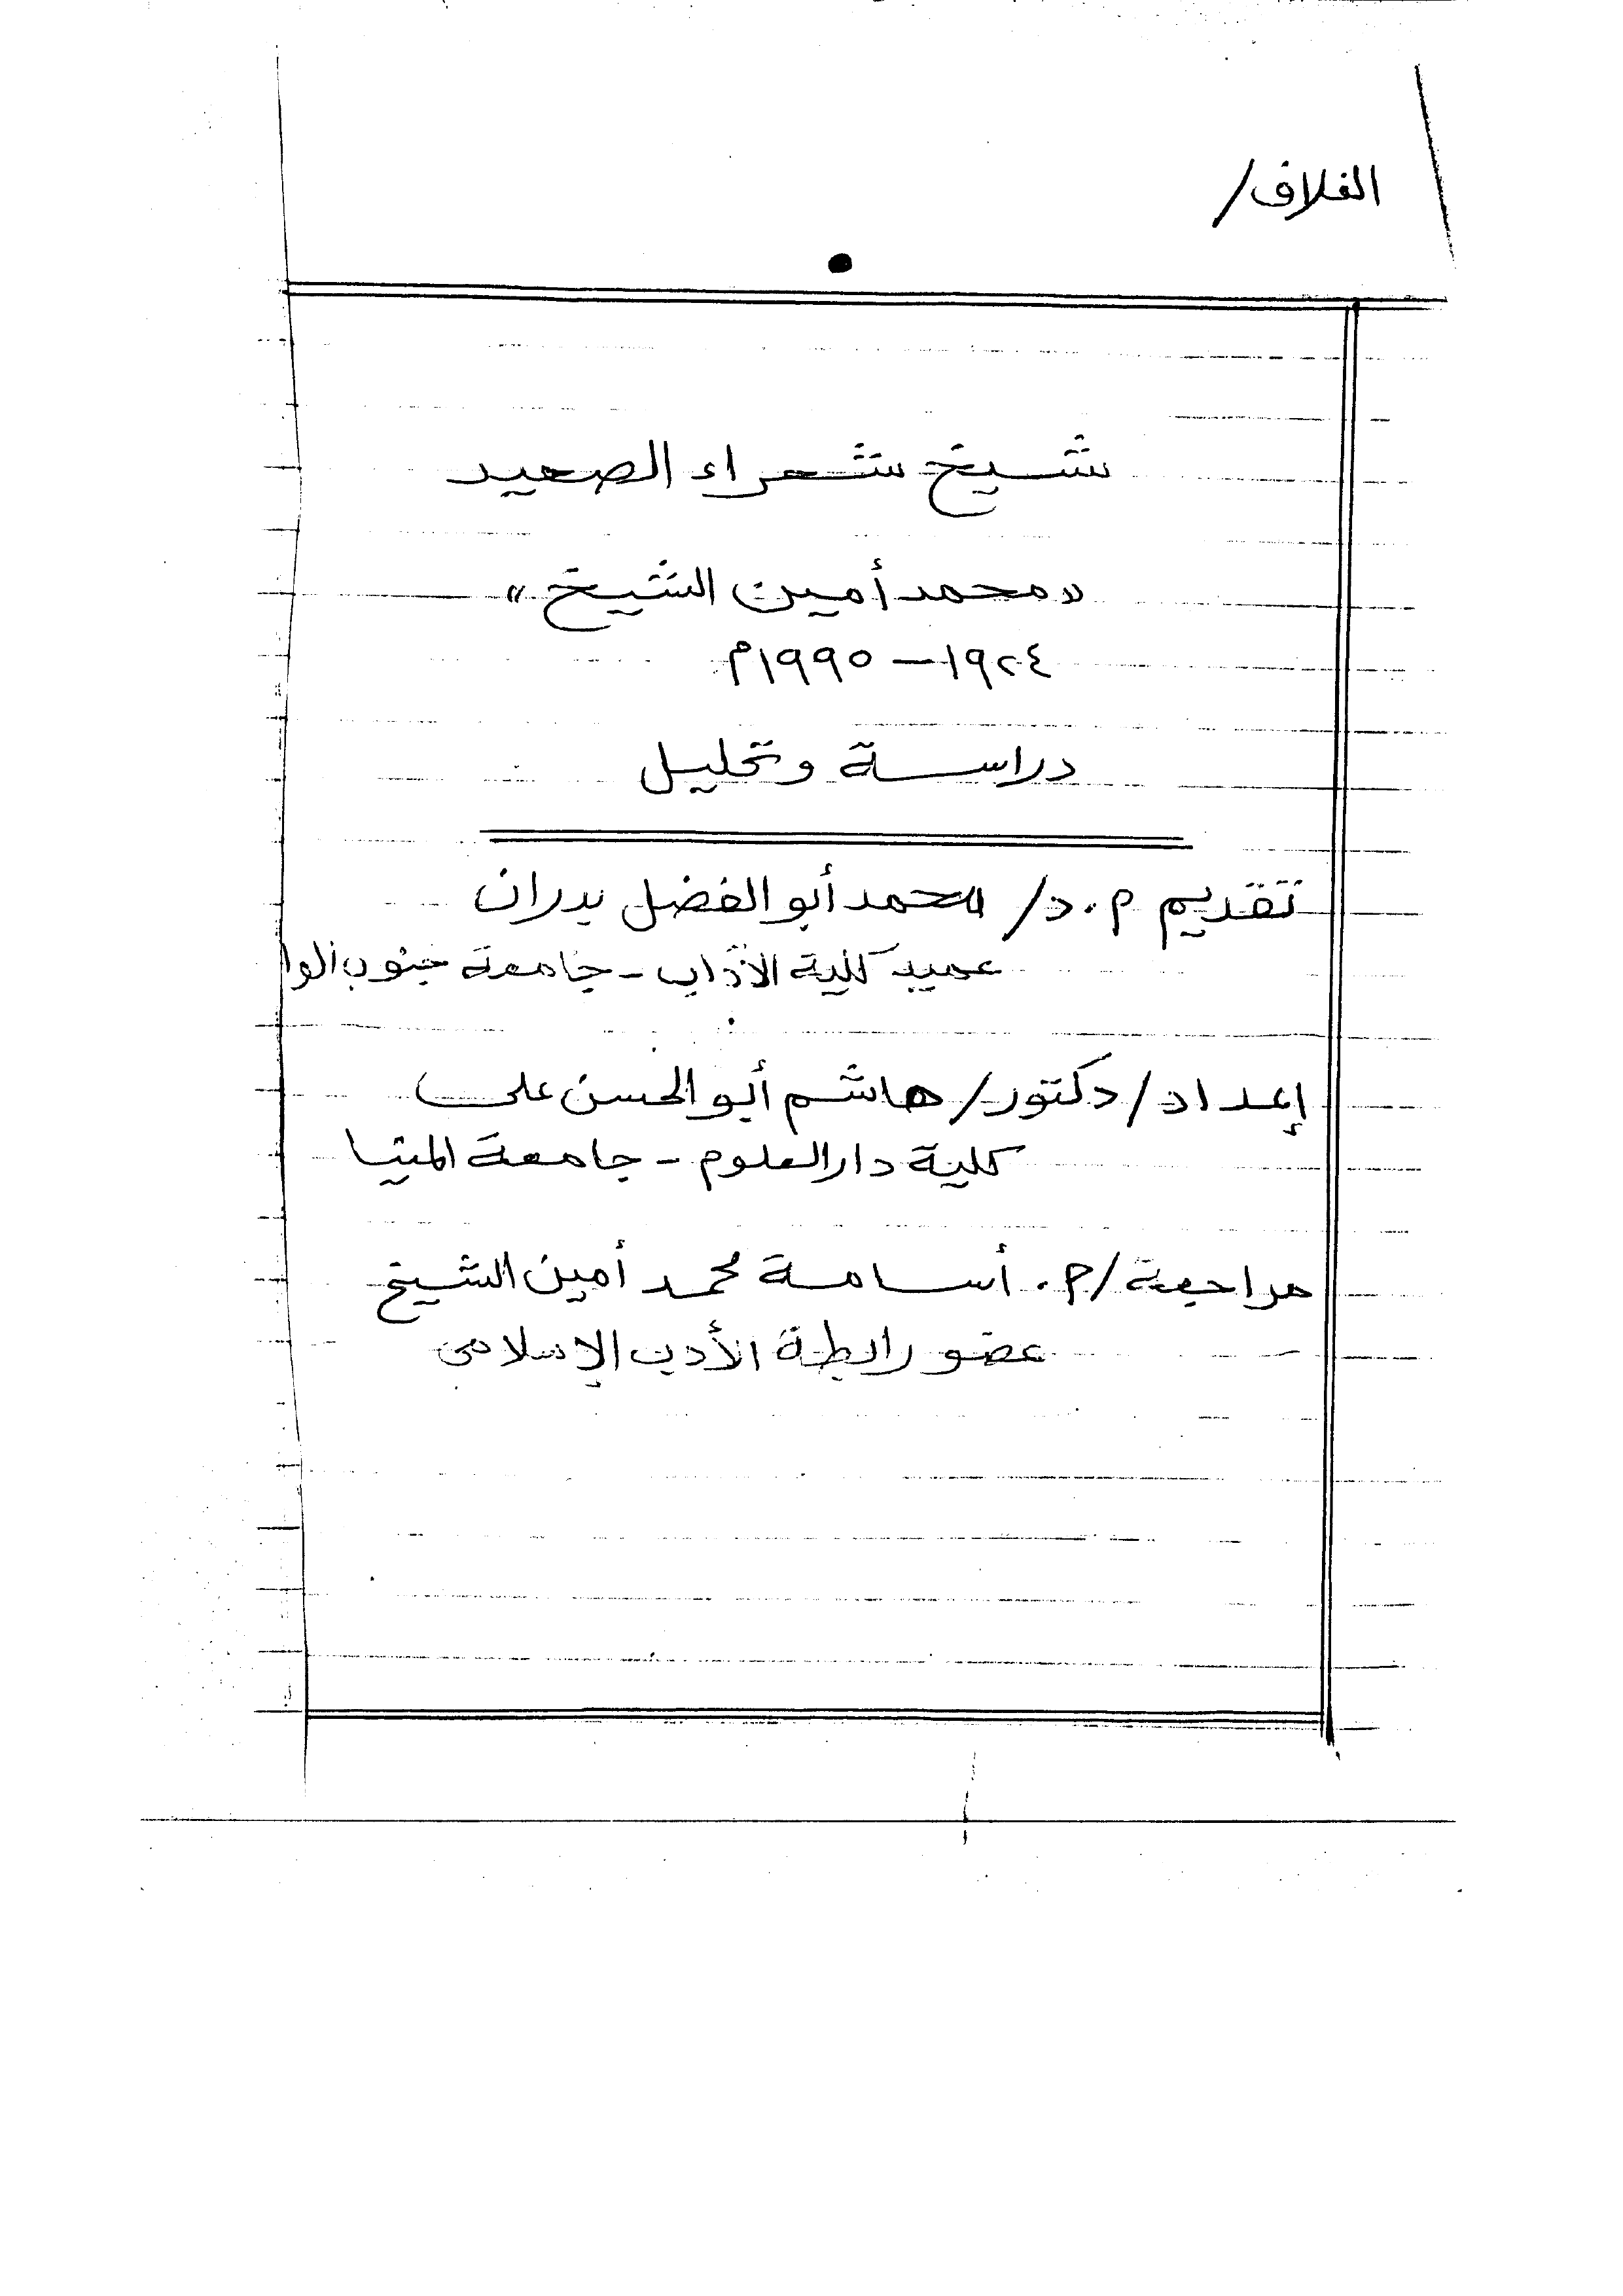 الغلاف/
شيخ شعراء الصعيد
«محمد أمين الشيخ»
١٩٢٤ – ١٩٩٥م
دراسة وتحليل
تقديم م.د/ محمد أبو الفضل بدران
عميد كلية الآداب - جامعة جنوب الوا
إعداد/ دكتور/ هاشم أبو الحسن على
كلية دار العلوم - جامعة المنيا
مراجعة/ م. أسامة محمد أمين الشيخ
عضو رابطة الأدب الإسلامى